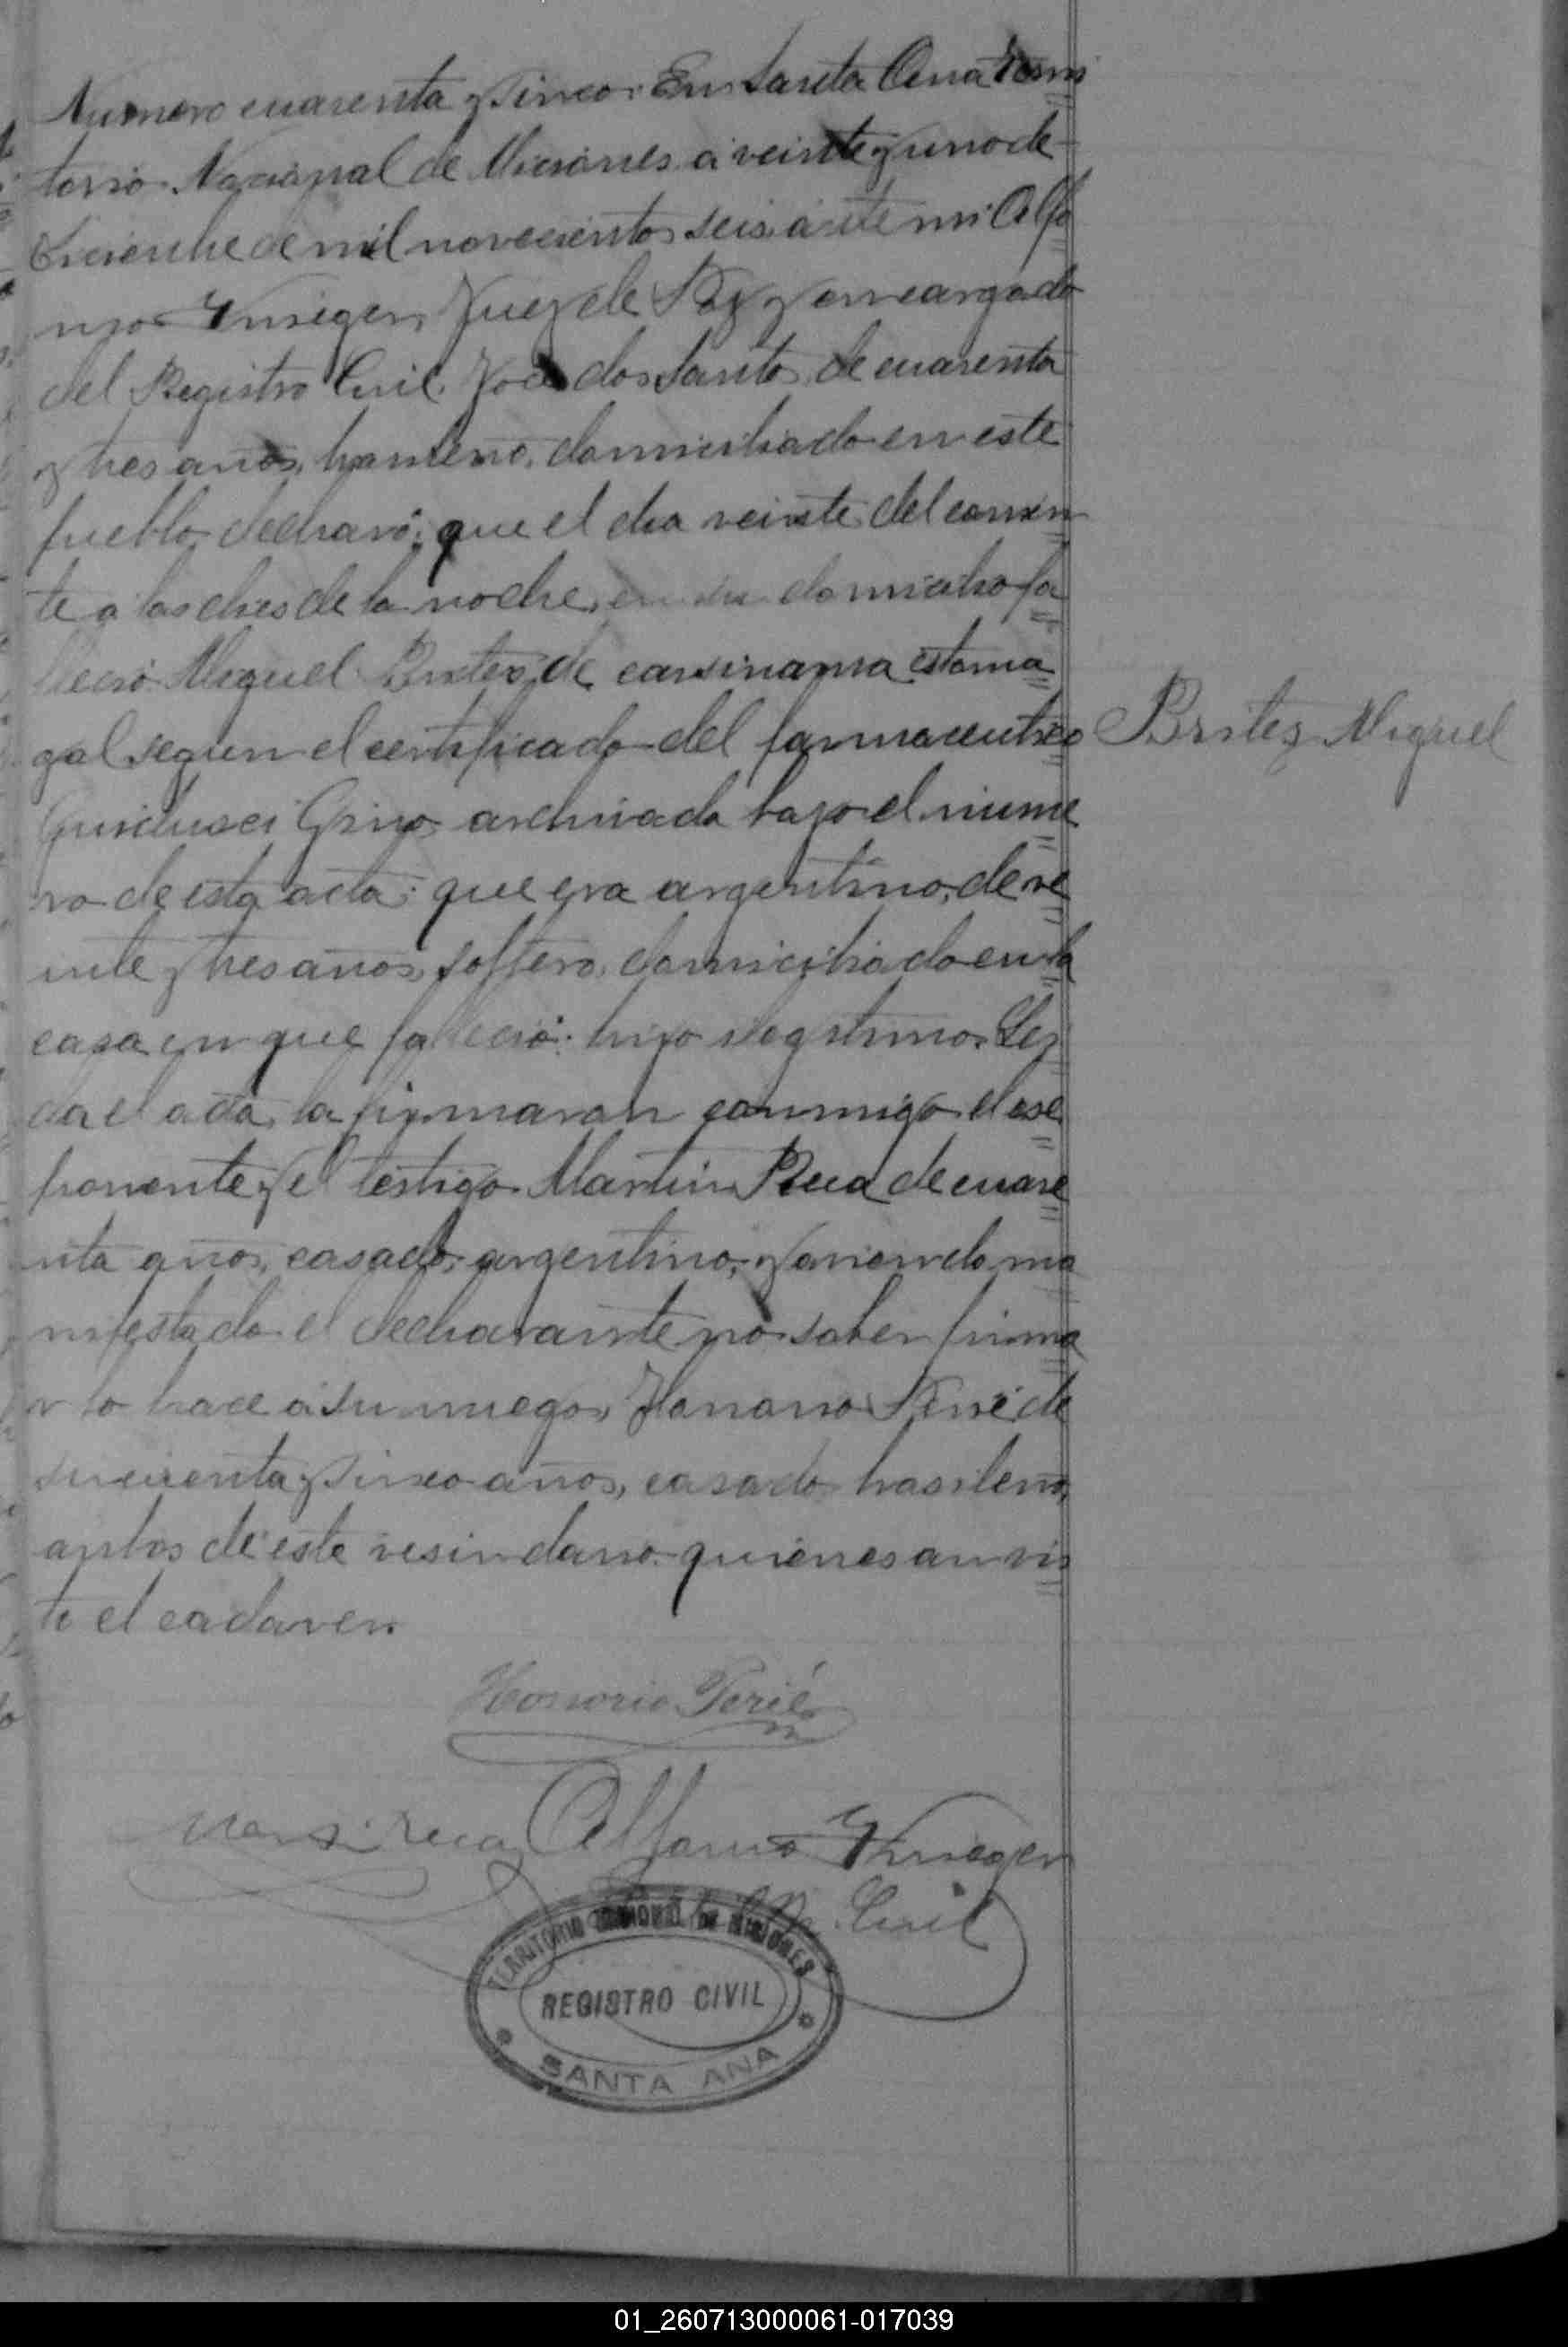 Numero cuarenta y sinco: En Santa Ana Terri
torio Nacional de Miciones a veinte y uno de
Diciembre de mil novecientos seis, ante mi Alfo
nso Krieger, Juez de Paz y encargado
del Registro Civil, José dos Santos, de cuarenta
y tres años, brasileño, domiciliado en este
pueblo, declaró: que el dia veinte del corrien
te a las dies de la noche, en su domicilio fa
llecio Miguel Britez, de carsinama estoma
gal segun el certificado del farmaceutico
archivada bajo el nume
ro de esta acta: que era argentino, de ve
inte y tres años, soltero, domiciliado en la
casa en que fallecio: hijo ilegitimo. Ley
da el acta, la firmaran conmigo el es
ponente y el testigo Martin Rua de cuare
nta años, casado, argentino, y aviendo ma
nifestado el declarante no saber firma
r lo hace a su ruego, Honorio Perié de
sincuenta y sinco años, casado brasileño,
anbos de este vesindario quienes an vis
to el cadaver.
Britez Miguel
Honorio Perié
Rua Alfonso Krieger
Civil
TERRITORIO NACIONAL DE MISIONES
REGISTRO CIVIL
SANTA ANA
01_260713000061-017039